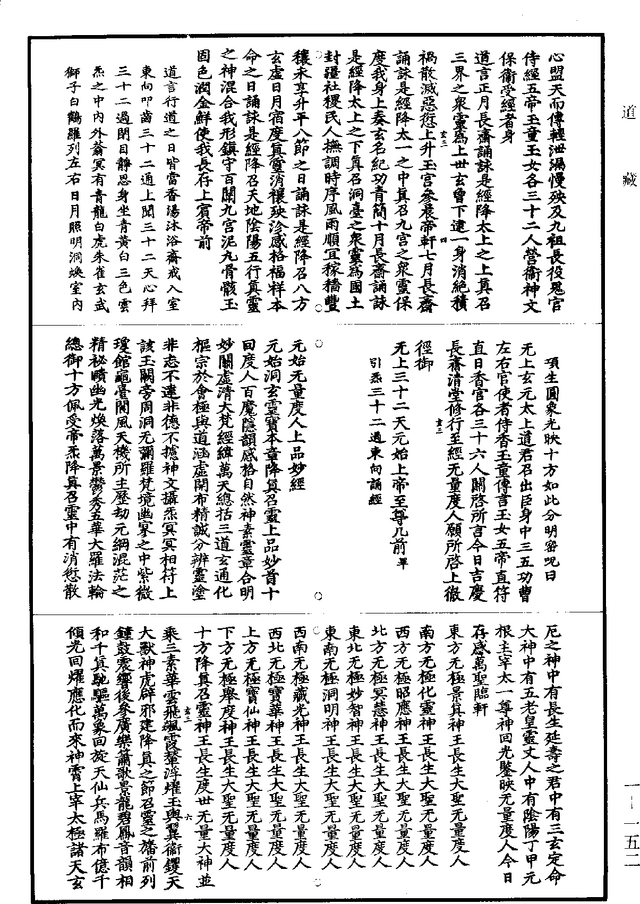 道藏
心盟天而傳輕泄漏慢殃及九祖長役鬼官
侍經五帝玉童玉女各三十二人營衛神文
保衛受經者身
道言正月長齋誦詠是經降太上之上真召
三界之衆靈爲上世玄曾下逮一身消絕積
禍散滅惡愆上升玉宮參晨帝軒七月長齋
誦詠是經降太一之中真召九宮之衆靈保
度我身上奏玄名紀功青簡十月長齋誦詠
是經降太上之下真召洞臺之衆靈爲國土
封疆社稷民人撫調時序風雨順宜稼穡豐
穰永享升平八節之日誦詠是經降召八方
玄虛日月宿度真靈消穰殃沴感格福祥本
命之日誦詠是經降召天地陰陽五行真靈
之神混合我形鎮守百關九宮泥丸骨骸玉
固色潤金鮮使我長存上賓帝前
道言行道之日皆當香陽沐浴齋戒入室
東向叩齒三十二通上聞三十二天心拜
三十二過閉目靜思身坐青黃白三色雲
炁之中內外蓊冥有青龍白虎朱雀玄武
獅子白鶴羅列左右日月照明洞煥室內
項生圓象光映十方如此分明密呪曰
无上玄元太上道君召出臣身中三五功曹
左右官使者侍香玉童傳言玉女五帝直符
直日香官各三十六人關啓所言今日吉慶
長齋清堂修行至經无量度人願所啓上徹
徑御
无上三十二天元始上帝至尊几前畢
引炁三十二過東向誦經
元始无量度人上品妙經
元始洞玄靈寶本章降真召靈上品妙首十
回度人百魔隱韻感格自然神素靈章合明
妙闡虛清大梵經緯萬天總括三道玄通化
樞宗於會極與道涵虛開布精誠分辨靈塗
非志不達非德不擔神文攝炁冥冥相符上
該玉闕旁周洞无彌羅梵境幽寥之中紫微
瓊館龜臺閬風天機所主歷劫元綱混茫之
精祕賾幽光煥落萬景鬱秀五華大羅法輪
總御十方佩受帝炁降真召靈中有消愆散
厄之神中有長生延壽之君中有三玄定命
大神中有五老皇靈丈人中有陰陽丁甲元
根主宰太一尊神回光鑒映无量度人今日
存感萬聖臨軒
東方无極景真神王長生大聖无量度人
南方无極化靈神王長生大聖无量度人
西方无極昭應神王長生大聖无量度人
北方无極冥慈神王長生大聖无量度人
東北无極妙智神王長生大聖无量度人
東南无極洞明神王長生大聖无量度人
西南无極藏光神王長生大聖无量度人
西北无極寶華神王長生大聖无量度人
上方无極寶仙神王長生大聖无量度人
下方无極舉度神王長生大聖无量度人
十方降真召靈神王長生度世无量大神並
乘三素華雲飛颷霞輦浮燿玉輿翼衛鑊天
大獸神虎辟邪建降真之節召靈之旛前列
鐘鼓震響後參廣樂簫歌景龍碧鳳音韻相
和千真馳驅萬象回旋天仙兵馬羅布億千
傾光回燿應化而來神霄上宰太極諸天玄
一－一五二